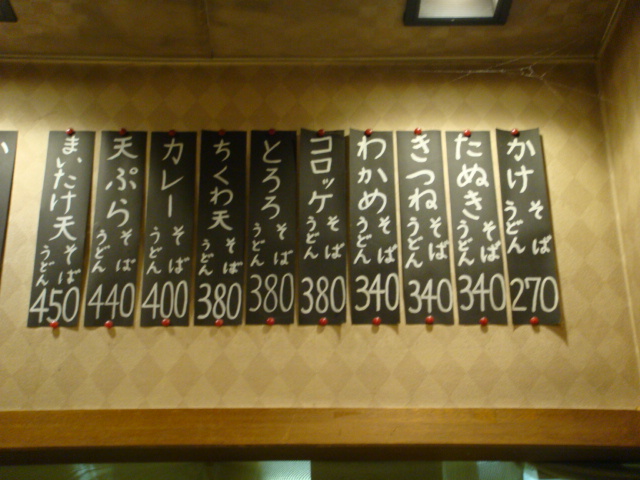 かけ そば うどん 270
たぬき そば うどん 340
きつね そば うどん 340
わかめ そば うどん 340
コロッケ そば うどん 380
とろろ そば うどん 380
ちくわ天 そば うどん 380
カレー そば うどん 400
天ぷら そば うどん 440
まいたけ天 そば うどん 450